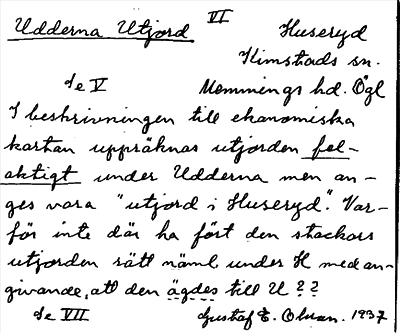 VI
Udderna Utjord Huseryd
Kimstads sn.
Se V Memmings hd. Ögl
I beskrivningen till ekonomiska
kartan uppräknas utjorden fel-
aktigt under Udderna men an-
ges vara "utjord i Huseryd". Var-
för inte där ha fört den stackars
utjorden rätt näml. under H med an-
givande, att den ägdes till U??
Se VII Gustaf E. Olsson. 1937